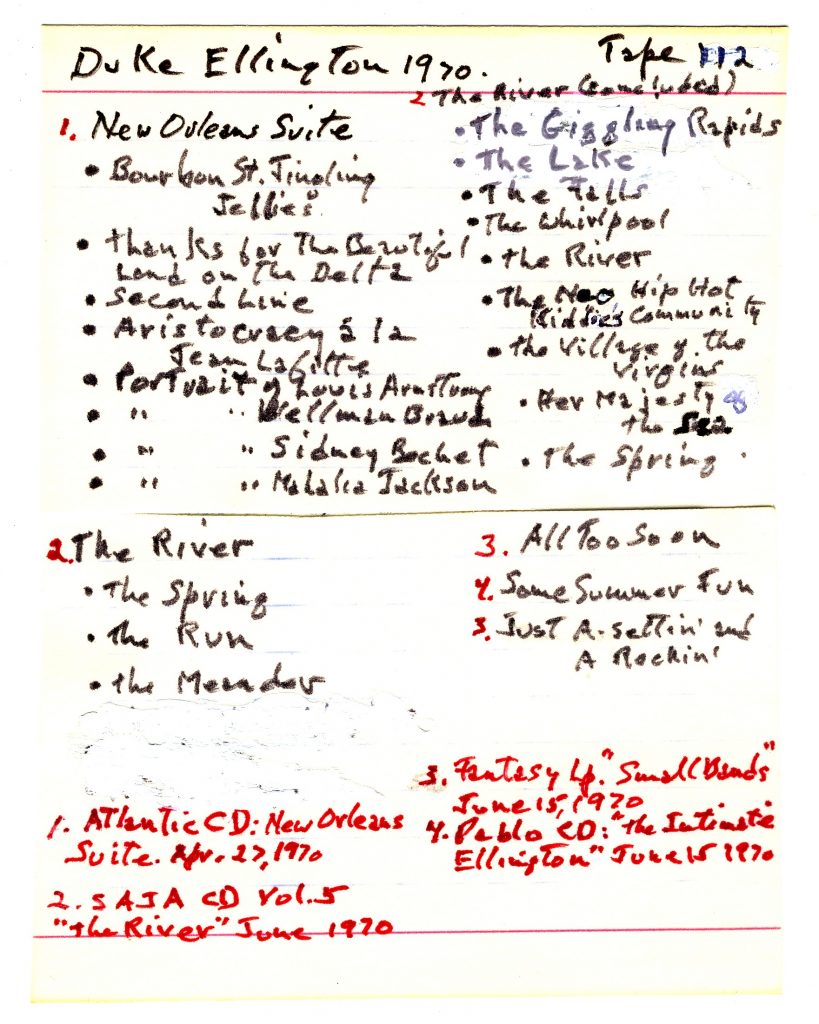 Duke Ellington 1970.
Tape 112
1. New Orleans Suite
• Bourbon St. Jingling
Jollies"
• Thanks for The Beautiful
Land on The Delta
• Second Line
• Aristocracy á la
Jean Lafitte
• Portrait of Louis Armstrong
• " " Wellman Braud
• " " Sidney Bechet
• " " Mahalia Jackson
2. The River (concluded)
• The Giggling Rapids
• The Lake
• The Falls
• The Whirlpool
• The River
• The Neo Hip Hot
Kiddies Community
• The Village of the
Virgins
• Her Majesty
the Sea
• The Spring.
2. The River
• The Spring
• The Run
• The Meander
3. All Too Soon
4. Some Summer Fun
3. Just A-settin' and
A Rockin'
1. Atlantic CD: New Orleans
Suite. Apr. 27, 1970
2. SAJA CD Vol. 5
"The River" June 1970
3. Fantasy Lp. "Small Bands"
June 15, 1970
4. Pablo CD: "The Intimate
Ellington" June 15 1970